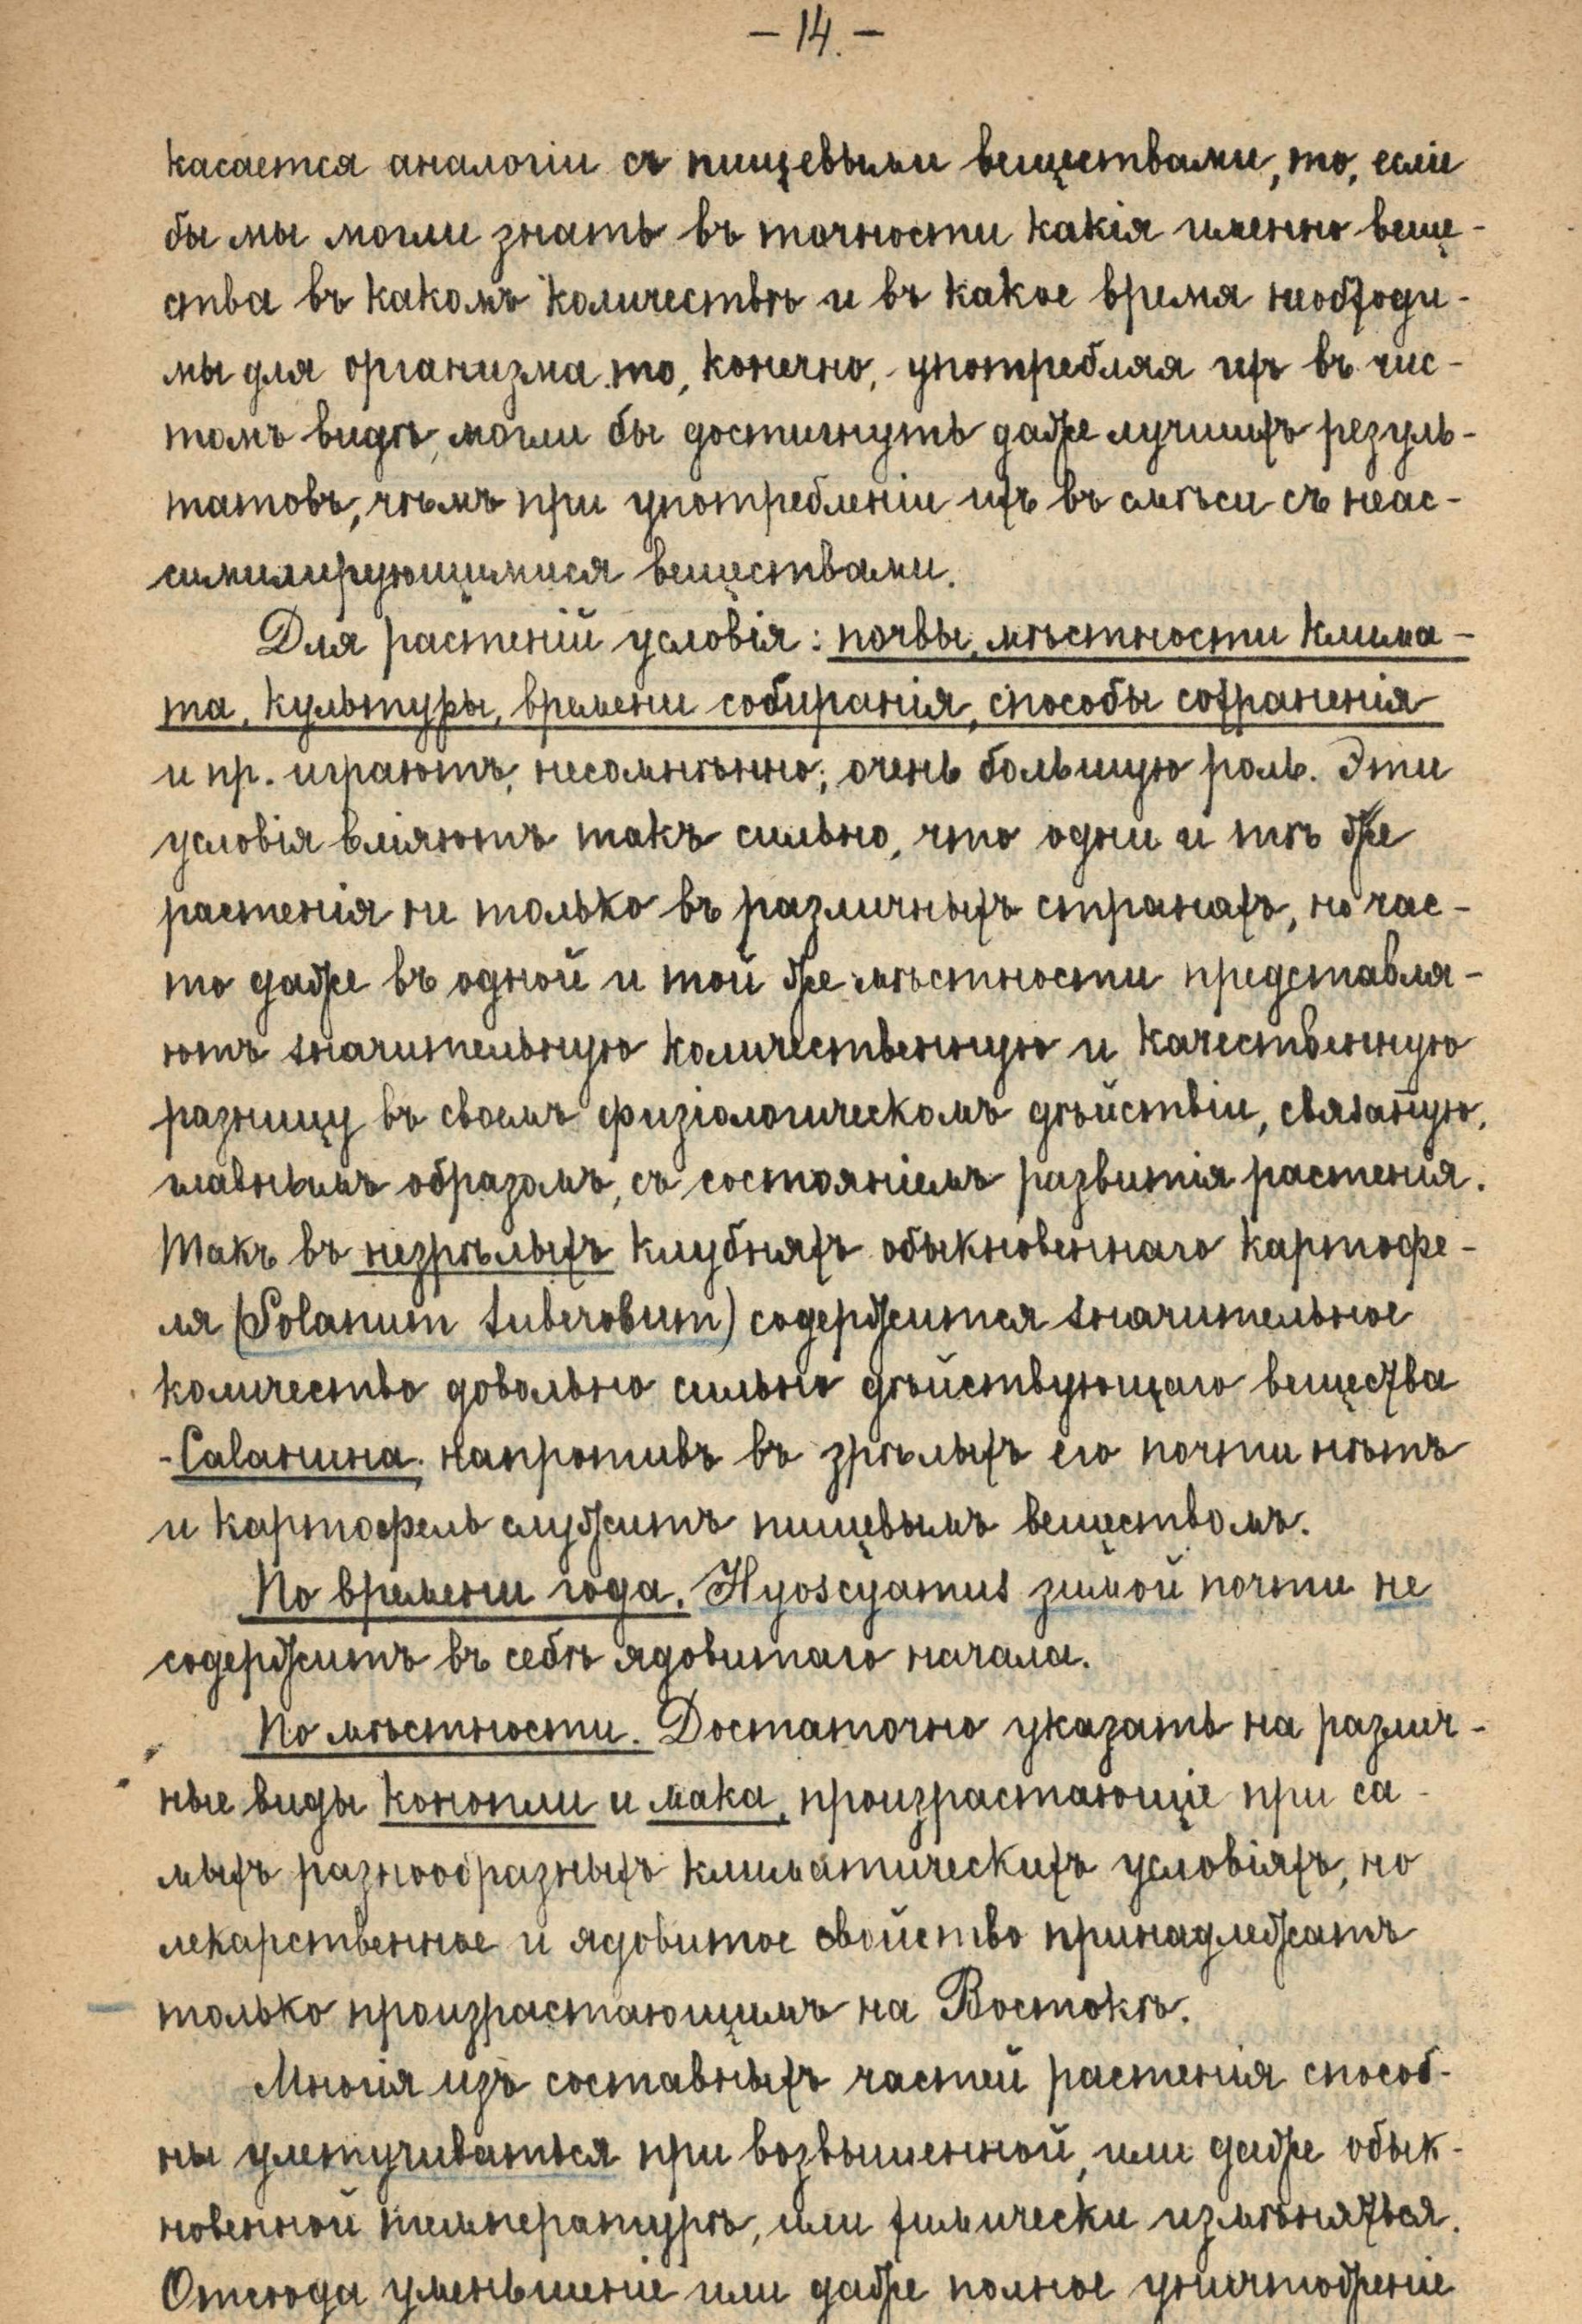 – 14. –
касается аналогіи съ пищевыми веществами, то, если
бы мы могли знать въ точности какія именно веще-
ства въ какомъ количествѣ и въ какое время необходи-
мы для организма то, конечно, употребляя ихъ въ чис-
томъ видѣ, могли бы достигнуть даже лучшихъ резуль-
татовъ, чѣмъ при употребленіи ихъ въ смѣси съ неас-
симилирующимися веществами.
Для растеній условія: почвы, мѣстности клима-
та, культуры, времени собиранія, способы сохраненія
и пр. играютъ, несомнѣнно, очень большую роль. Эти
условія вліяютъ такъ сильно, что одни и тѣ же
растенія не только въ различныхъ странахъ, но час-
то даже въ одной и той же мѣстности представля-
ютъ значительную количественную и качественную
разницу въ своемъ физіологическомъ дѣйствіи, связаную,
главнымъ образомъ, съ состояніемъ развитія растенія.
Такъ въ незрѣлыхъ клубняхъ обыкновеннаго картофе-
ля (Solanum tuberosum) содержится значительное
количество довольно сильно дѣйствующаго вещества
-Саланина, напротивъ въ зрѣлыхъ его почти нѣтъ
и картофель служитъ пищевымъ веществомъ.
По времени года. Hyoscyamus зимой почти не
содержитъ въ себѣ ядовитаго начала.
По мѣстности. Достаточно указать на различ-
ные виды конопли и мака, произрастающіе при са-
мыхъ разнообразныхъ климатическихъ условіяхъ, но
лекарственное и ядовитое свойство принадлежатъ
только произрастающимъ на Востокѣ.
Многія изъ составныхъ частей растенія способ-
ны улетучиваться при возвышенной, или даже обык-
новенной температурѣ, или химически измѣняться.
Отсюда уменьшеніе или даже полное уничтоженіе